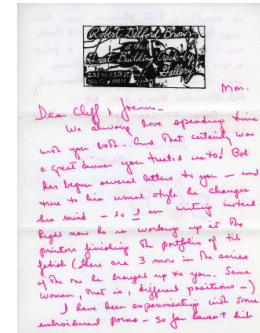 Robert Delford Brown
at the
Great Building Crack-Up
Gallery
Mon.
Dear Cliff & Joann -
We always love spending time
with you both. And that certainly was
a great dinner you treated us to! Bob
has begun several letters to you - and
true to his usual style he changes
his mind - so I am writing instead
Right now he is working up at the
printers finishing the portfolio of tit
fetish (there are 3 more in the series
of the one he brought up to you. Same
woman, that is, different positions -)
I have been experimenting with some
embroidered porno - so far haven't hit